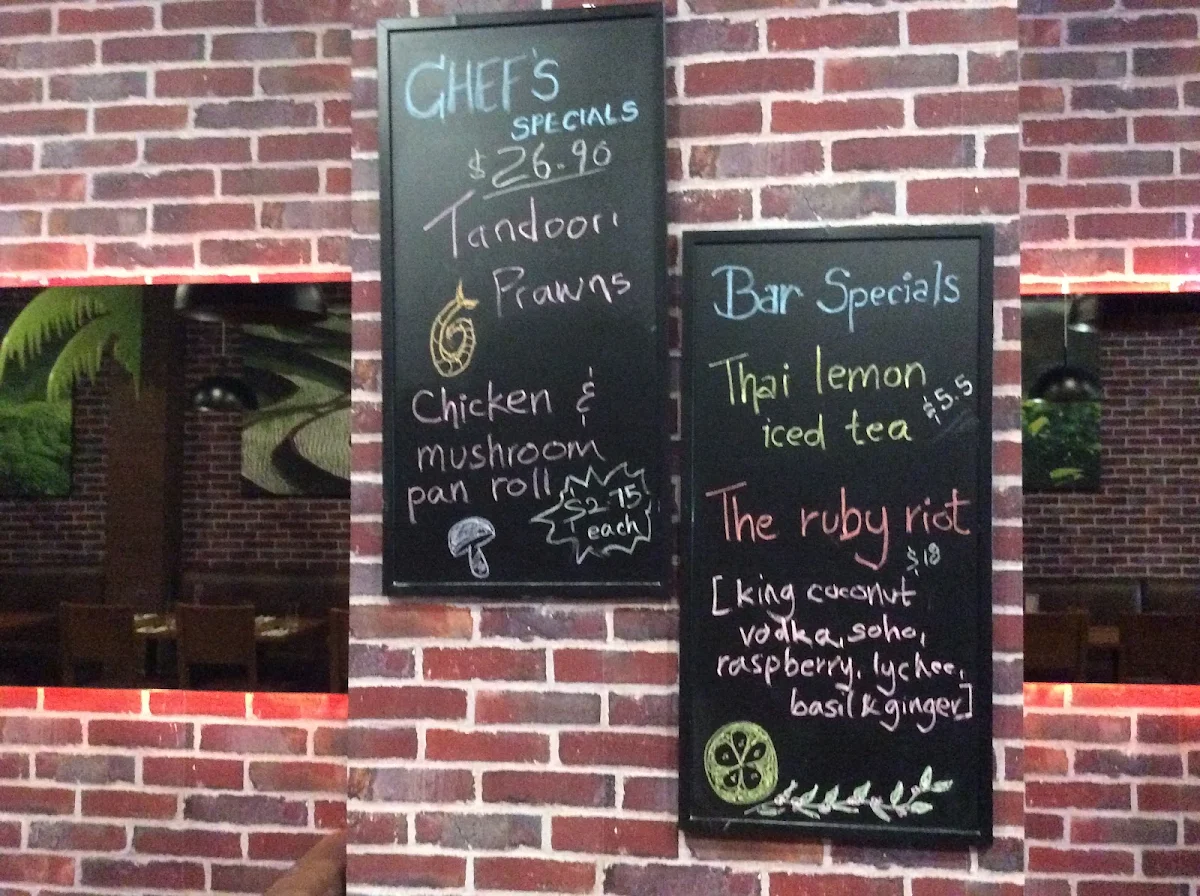 CHEF'S
SPECIALS
$26.90
Tandoori
Prawns
Chicken &
mushroom
pan roll
$2.75
each
Bar Specials
Thai lemon
iced tea
$5.5
The ruby riot
$18
[king coconut
vodka, soho,
raspberry, lychee,
basil & ginger]